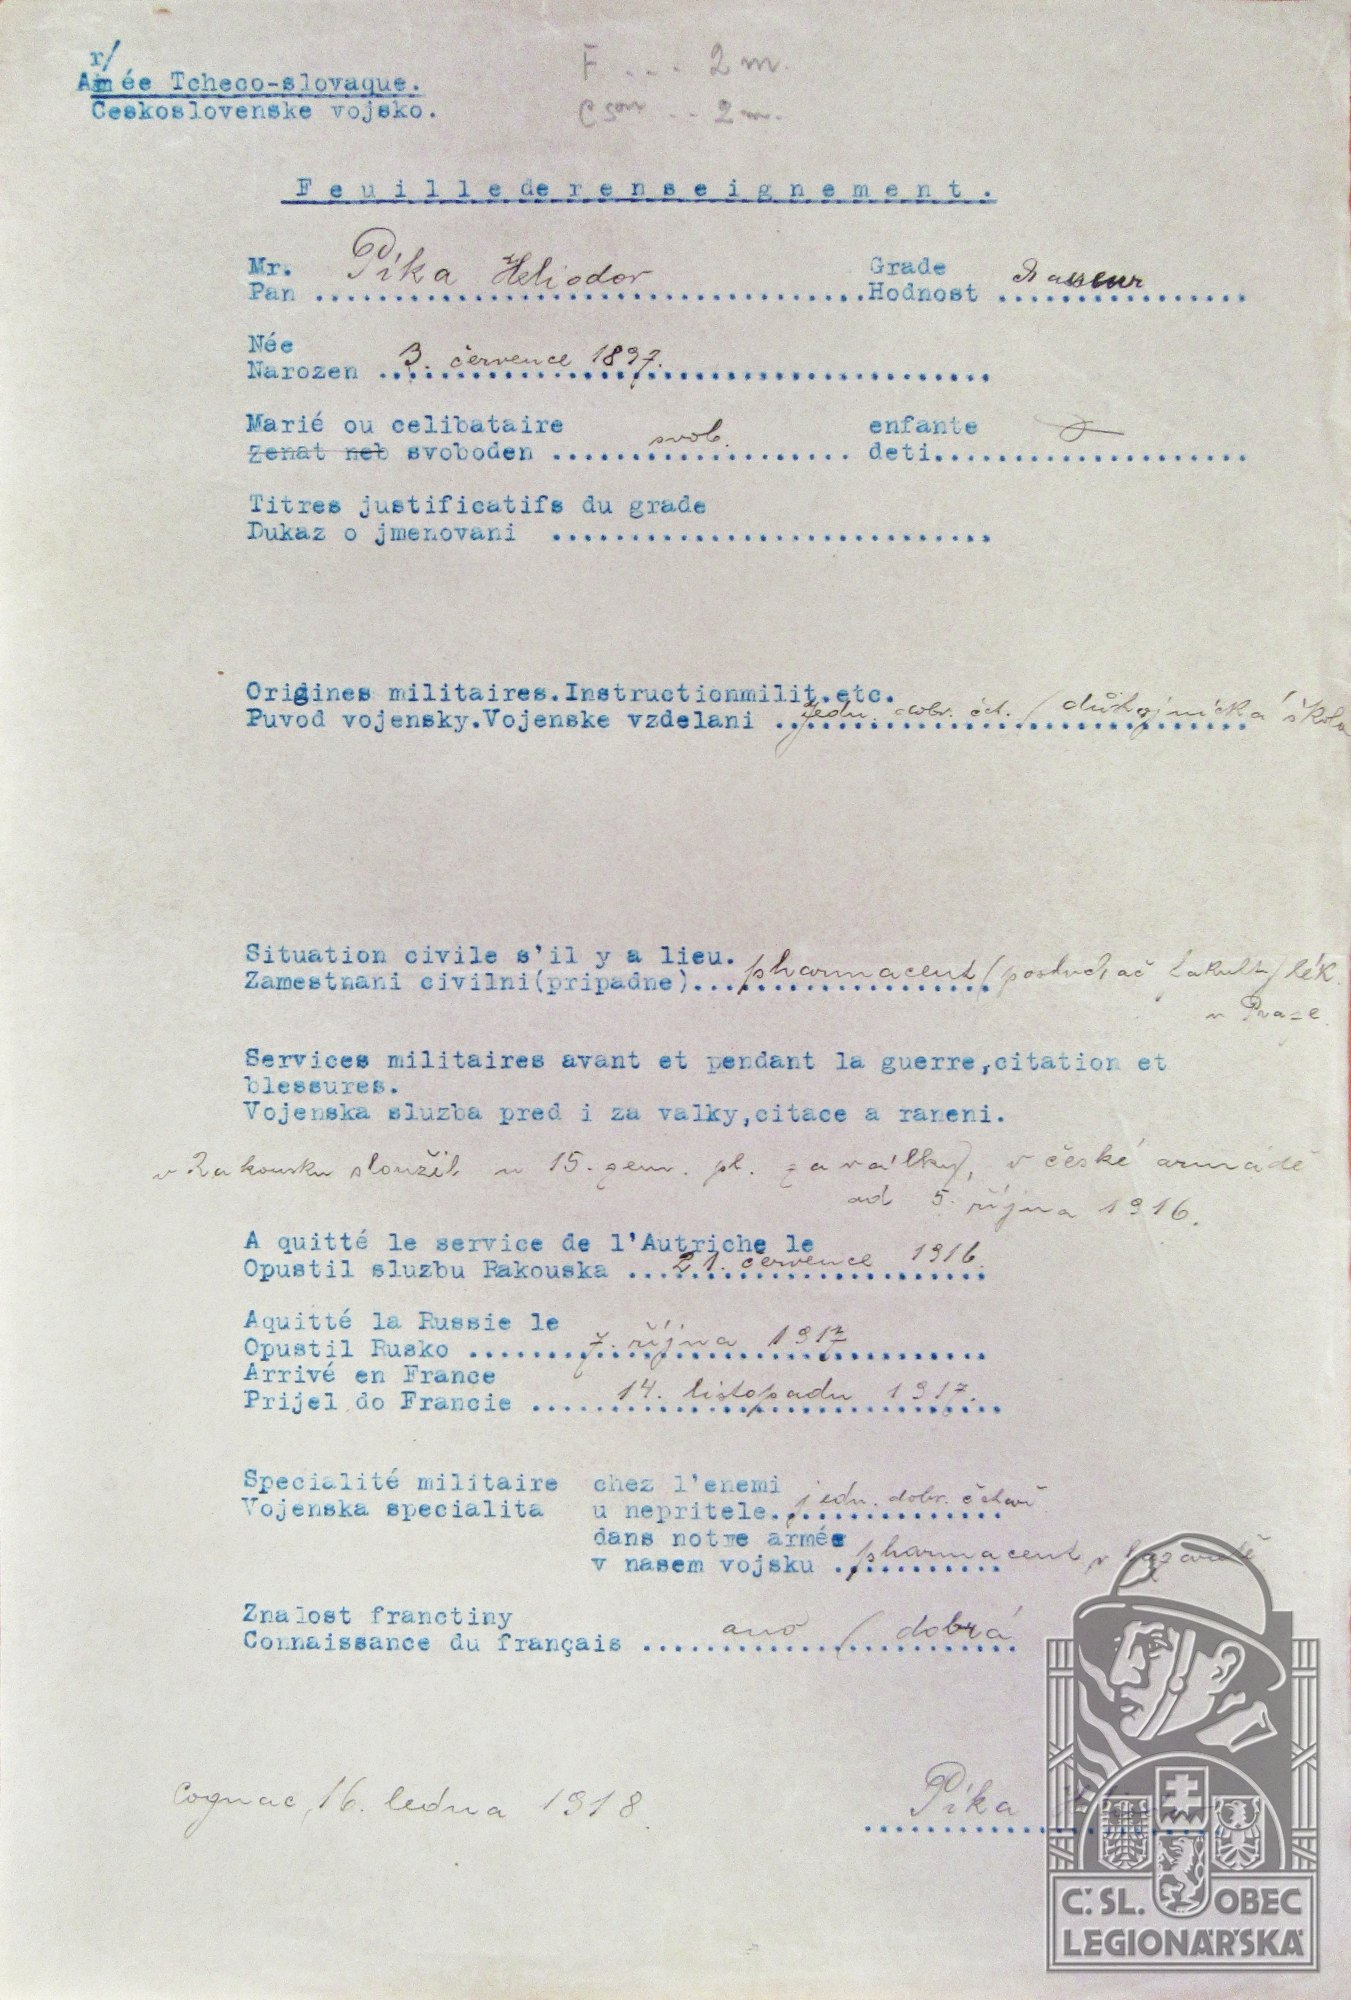 r/
Amée Tcheco-slovaque.
Ceskoslovenske vojsko.
F ... 2 m.
Csm .. 2 m.
Feuille de renseignement.
Mr. Píka Heliodor Grade
Pan Hodnost Chasseur
Née
Narozen 3. července 1897.
Marié ou celibataire enfante
zenat neb svoboden svob. deti
Titres justificatifs du grade
Dukaz o jmenovani
Origines militaires.Instructionmilit.etc.
Puvod vojensky.Vojenske vzdelani jedn. dobr. čet. / důstojnická škola
Situation civile s'il y a lieu.
Zamestnani civilni(pripadne) pharmaceut (posluchač fakult) lék.
v Praze.
Services militaires avant et pendant la guerre,citation et
blessures.
Vojenska sluzba pred i za valky,citace a raneni.
v Rakousku sloužil u 15. zem. pl. za války, v české armádě
od 5. října 1916.
A quitté le service de l'Autriche le
Opustil sluzbu Rakouska 21. července 1916.
Aquitté la Russie le
Opustil Rusko 7. října 1917
Arrivé en France
Prijel do Francie 14. listopadu 1917.
Specialité militaire chez l'enemi
Vojenska specialita u nepritele. jedn. dobr. četař
dans notre armée
v nasem vojsku pharmaceut v lazaretě
Znalost franctiny
Connaissance du français ano / dobrá
Cognac 16. ledna 1918.
Píka
Č. SL. OBEC
LEGIONÁŘSKÁ